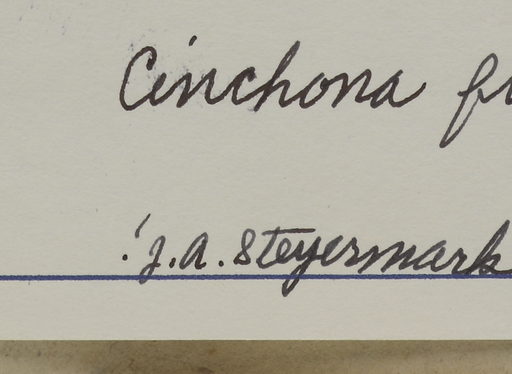 Cinchona
J.A. Steyermark